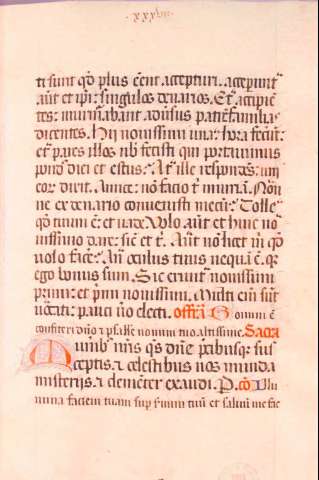 xxxviii
ti sunt qd plus eent accepturi. acceperunt
aut et ipi singulos denarios. Et accipien
tes: murmurabant adusus patremfamilias
dicentes. Hij nouissimi una hora fecerut:
et pares illos nob fecisti qui portauimus
pond diei et estus. At ille respondens: uni
eor dixit. Amice: no facio t iniuriam. Non
ne ex denario conuenisti mecu? Tolle
qd tuum e: et uade. Volo aut et huic no
uissimo dare: sic et t. Aut non licet m qd
uolo facere? An oculus tuus nequa e. qr
ego bonus sum. Sic erunt nouissimi
primi: et primi nouissimi. Multi eni sunt
uocati: pauci uo electi. offra Bonum e
confiteri dno: et psallere nomini tuo altissime. Sacra
Munib nris qs dne precibusqr sus
ceptis: et celestibus nos munda
misteriis: et clementer exaudi. P. co Illu
mina faciem tuam sup seruum tuu et saluu me fac